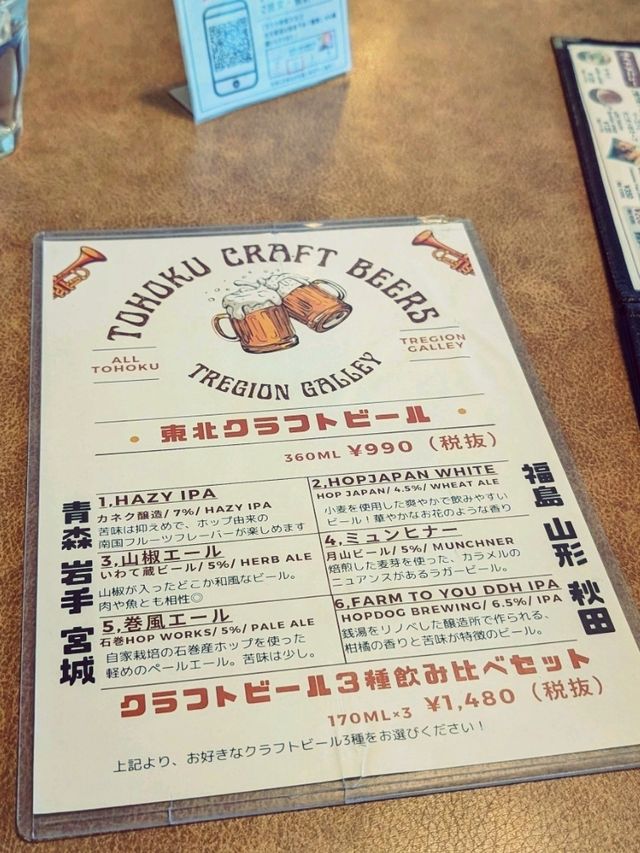 TOHOKU CRAFT BEERS
ALL
TOHOKU
TREGION
GALLEY
TREGION GALLEY
東北クラフトビール
360ML ¥990（税抜）
青森
1,HAZY IPA
カネク醸造/ 7%/ HAZY IPA
苦味は抑えめで、ホップ由来の
南国フルーツフレーバーが楽しめます
2,HOPJAPAN WHITE
HOP JAPAN/ 4.5%/ WHEAT ALE
小麦を使用した爽やかで飲みやすい
ビール！華やかなお花のような香り
福島
岩手
3,山椒エール
いわて蔵ビール/ 5%/ HERB ALE
山椒が入ったどこか和風なビール。
肉や魚とも相性◎
4,ミュンヒナー
月山ビール/ 5%/ MUNCHNER
焙煎した麦芽を使った、カラメルの
ニュアンスがあるラガービール。
山形
宮城
5,巻風エール
石巻HOP WORKS/ 5%/ PALE ALE
自家栽培の石巻産ホップを使った
軽めのペールエール。苦味は少し。
6,FARM TO YOU DDH IPA
HOPDOG BREWING/ 6.5%/ IPA
銭湯をリノベした醸造所で作られる、
柑橘の香りと苦味が特徴のビール。
秋田
クラフトビール3種飲み比べセット
170ML×3 ¥1,480（税抜）
上記より、お好きなクラフトビール3種をお選びください！